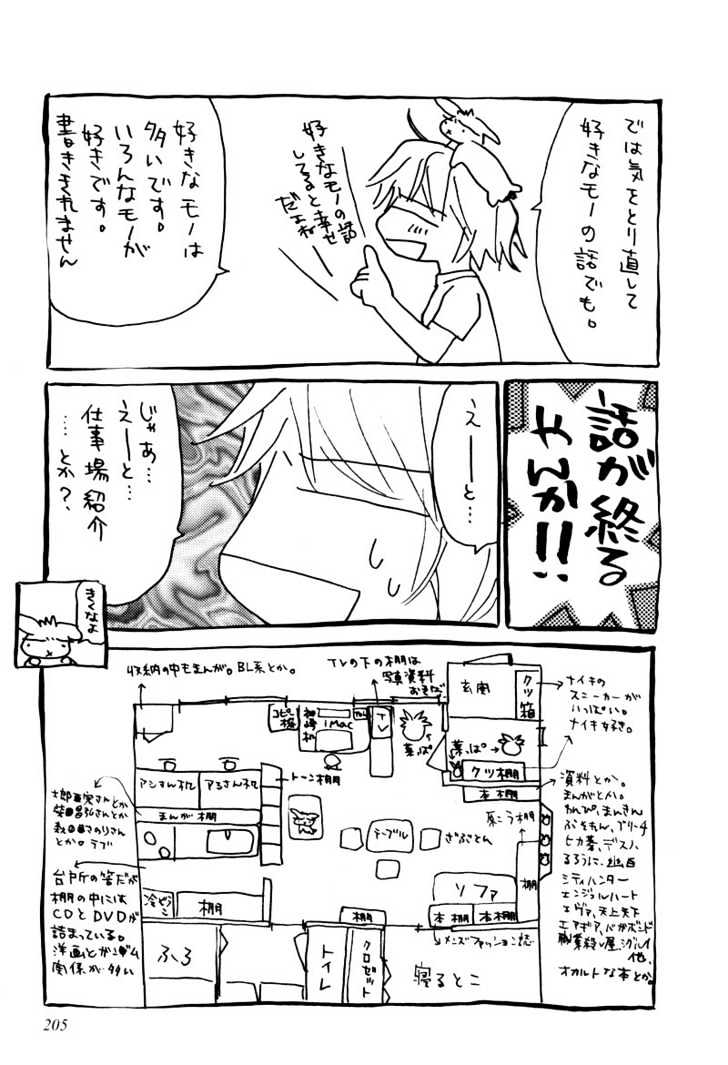 では気をとり直して
好きなモノの話でも。
好きなモノの話
してると幸せ
だよね
好きなモノは
多いです。
いろんなモノが
好きです。
書ききれません
話が終る
やんか!!
えーと…
じゃあ…
えーと…
仕事場紹介
……とか?
きくなよ
収納の中もまんが。BL系とか。
TVの下の棚は
写真資料
おきば
玄関
クツ箱
ナイキの
スニーカーが
いっぱい。
ナイキ好き。
コピー機
iMac
TEL
TV
葉っぱ
葉っぱ
クツ棚
本棚
アシさん机
アシさん机
トーン棚
まんが棚
テーブル
ざぶとん
棚
ソファ
本棚
本棚
冷ゾウコ
棚
棚
ふろ
トイレ
クロゼット
寝るとこ
メンズファッション誌
とか。ラブ
台所の筈だが
棚の中には
CDとDVDが
詰まっている。
洋画とかガンダム
関係が多い
資料とか。
まんがとか。
わんぴ、まんきん
ぷそもん、ブリーチ
ヒカ碁、デスノ
るろうに、
シティハンター
エンジェルハート
エヴァ、天上天下
エアギア、バガボンド
職業殺し屋、シグルイ
他、
オカルトな本とか。
205